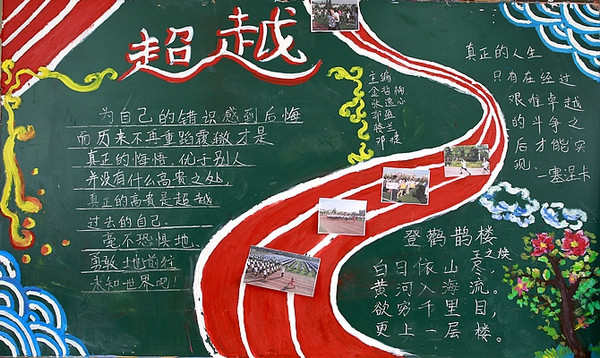 超越
为自己的错识感到后悔
而历来不再重蹈覆辙才是
真正的悔悟。优于别人
并没有什么高贵之处，
真正的高贵是超越
过去的自己。
毫不恐惧地、
勇敢地前往
未知世界吧！
主编
真正的人生
只有在经过
艰难卓越
的斗争之
后才能实
现.
—塞涅卡
登鹳鹊楼
王之
白日依山尽，
黄河入海流。
欲穷千里目，
更上一层楼。